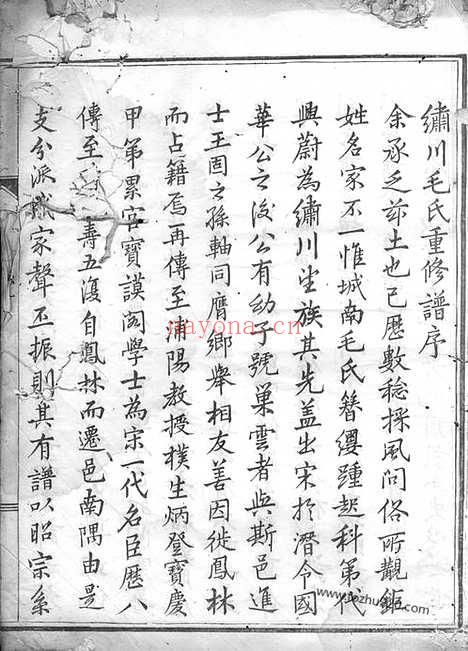 繡川毛氏重修譜序
余承乏茲土也已歷數稔採風问俗所觀鉅
姓名家不一惟城南毛氏簪纓踵起科第代
興蔚為繡川望族其先盖出宋於潛令國
華公之後公有幼子號巢雲者與斯邑進
士王固之孫軸同膺鄉舉相友善因徙鳳林
而占籍焉再傳至浦陽教授樸生炳登寶慶
甲第累官寶謨閣學士為宋一代名臣歷八
傳至壽五復自鳳林而遷邑南隅由是
支分派家聲丕振則其有譜以昭宗系
nayona.cn